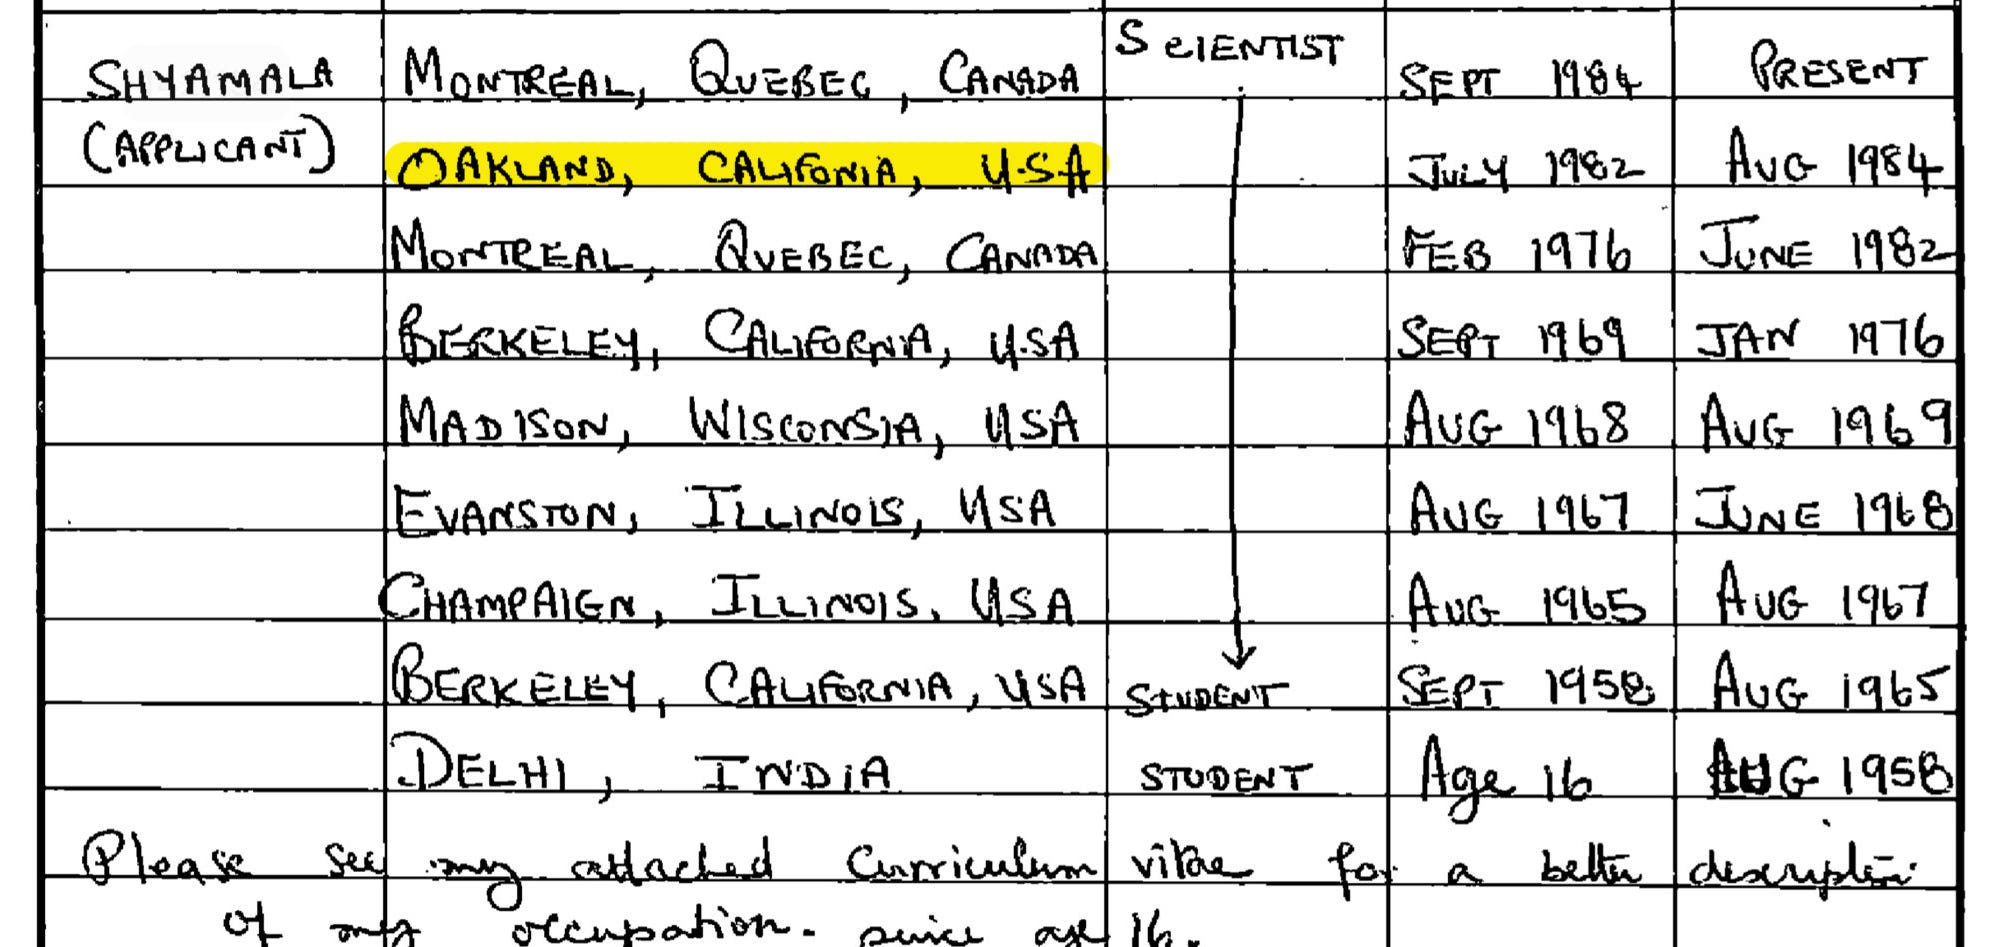 SHYAMALA MONTREAL, QUEBEC, CANADA SCIENTIST SEPT 1984 PRESENT
(APPLICANT) OAKLAND, CALIFONIA, U.S.A JULY 1982 AUG 1984
MONTREAL, QUEBEC, CANADA FEB 1976 JUNE 1982
BERKELEY, CALIFORNIA, U.S.A SEPT 1969 JAN 1976
MADISON, WISCONSIA, USA AUG 1968 AUG 1969
EVANSTON, ILLINOIS, USA AUG 1967 JUNE 1968
CHAMPAIGN, ILLINOIS, USA AUG 1965 AUG 1967
BERKELEY, CALIFORNIA, USA STUDENT SEPT 1958 AUG 1965
DELHI, INDIA STUDENT Age 16 AUG 1958
Please see my attached Curriculum vitae for a better description
of my occupation since age 16.